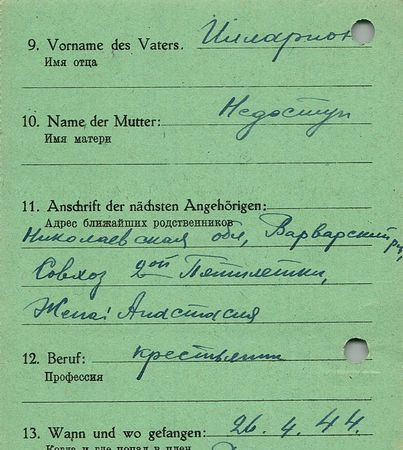 9. Vorname des Vaters. Илларион
Имя отца
10. Name der Mutter: Недоступ
Имя матери
11. Anschrift der nächsten Angehörigen:
Адрес ближайших родственников
Николаевская обл, Варварский
Совхоз 2ой Пятилетки,
Жена: Анастасия
12. Beruf: крестьянин
Профессия
13. Wann und wo gefangen: 26.4.44.
Когда и где попал в плен